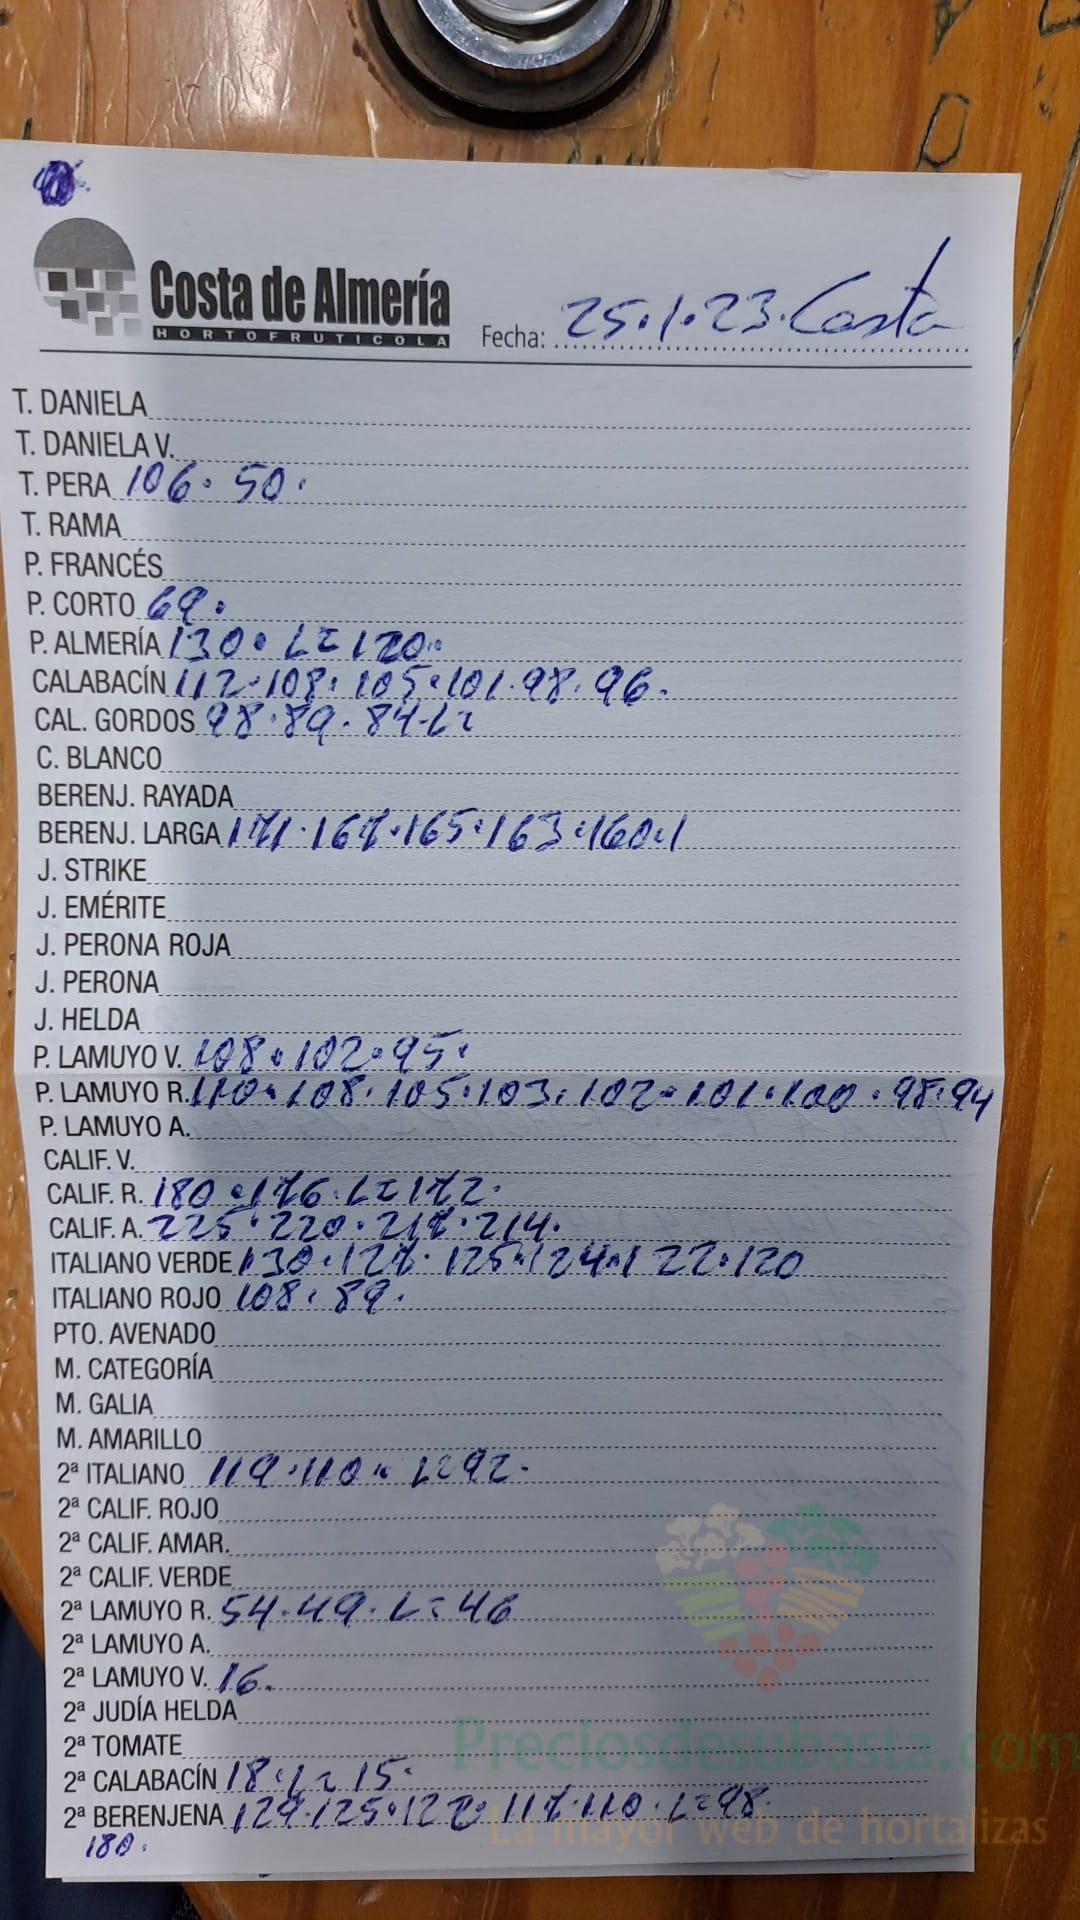 Costa de Almería
HORTOFRUTICOLA
Fecha: 25.1.23. Costa
T. DANIELA
T. DANIELA V.
T. PERA 106. 50.
T. RAMA
P. FRANCÉS
P. CORTO 69.
P. ALMERÍA 130. L= 120.
CALABACÍN 112.108.105.101.98.96.
CAL. GORDOS 98.89.84-L=
C. BLANCO
BERENJ. RAYADA
BERENJ. LARGA 171.167.165.163.160.1
J. STRIKE
J. EMÉRITE
J. PERONA ROJA
J. PERONA
J. HELDA
P. LAMUYO V. 108.102.95.
P. LAMUYO R. 110.108.105.103.102.101.100.98.94
P. LAMUYO A.
CALIF. V.
CALIF. R. 180.176.L=172.
CALIF. A. 225.220.217.214.
ITALIANO VERDE 130.127.125.124.122.120
ITALIANO ROJO 108.89.
PTO. AVENADO
M. CATEGORÍA
M. GALIA
M. AMARILLO
2ª ITALIANO 119.110. L=92.
2ª CALIF. ROJO
2ª CALIF. AMAR.
2ª CALIF. VERDE
2ª LAMUYO R. 54.49.L=46
2ª LAMUYO A.
2ª LAMUYO V. 16.
2ª JUDÍA HELDA
2ª TOMATE
2ª CALABACÍN 18.L=15.
2ª BERENJENA 129.125.122.117.110.L=98.
180.
Preciosdesubasta.com
La mayor web de hortalizas